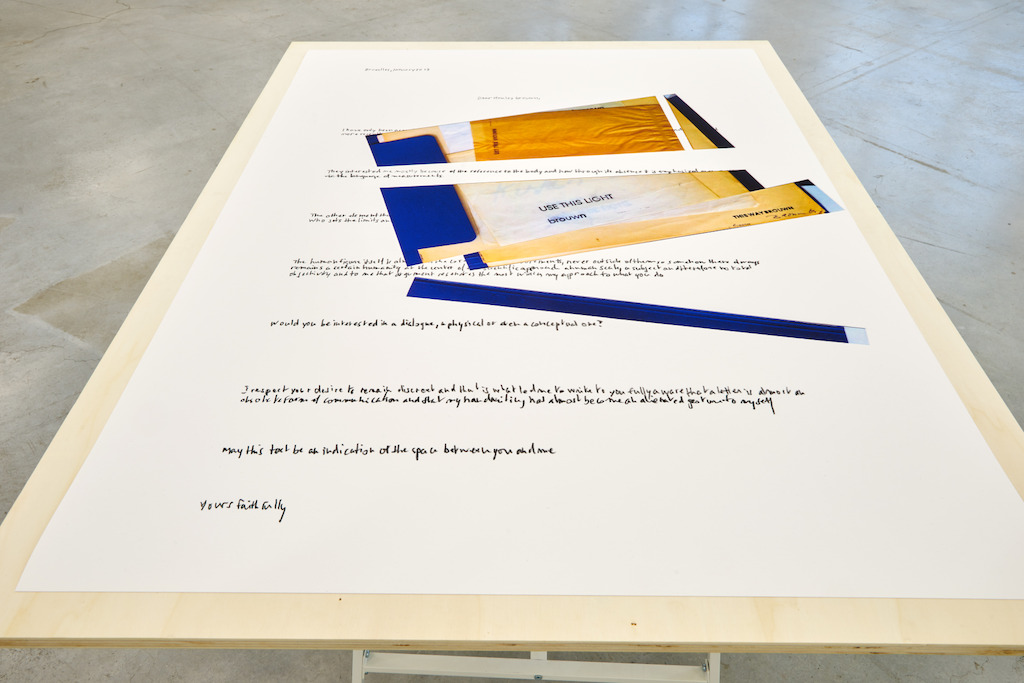 Dear stanley brouwn
I have only been
They interested me mostly because of the reference to the body and how through its absence it is
the language of measurements
USE THIS LIGHT
brouwn
THIS WAY BROUWN
The other element the
who sets the limits an
The human figure itself is never outside of them, so somehow there always
remains a certain humanity at the center of approach a subject and therefore
objectivity and to me that argument resonates the most with my approach to what you do
Would you be interested in a dialogue, a physical or even a conceptual one?
I respect your desire to remain discreet and that is what led me to write to you fully aware that a letter is almost an
obsolete form of communication and that my handwriting has almost become an alienated gesture to myself
May this text be an indication of the space between you and me
Yours faithfully